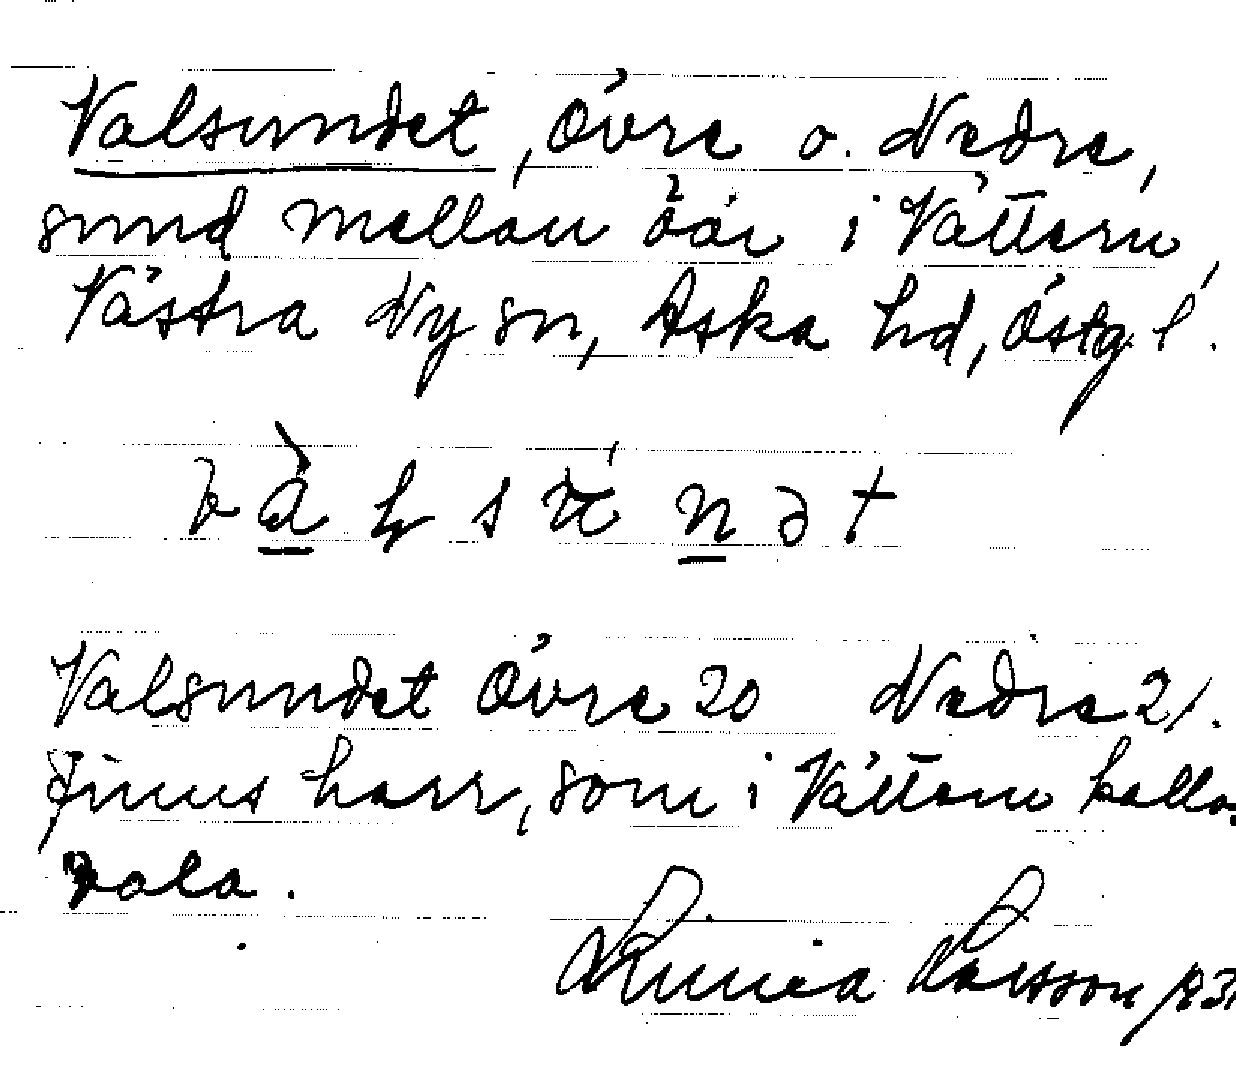 Valsundet, Övre o. Nedre,
sund mellan öar i Vättern,
Västra Ny sn, Aska hd, Östg. l.
Valsundet Övre 20 Nedre 21.
Finns harr, som i Vättern kallas
vala.
Linnea Larsson 1931